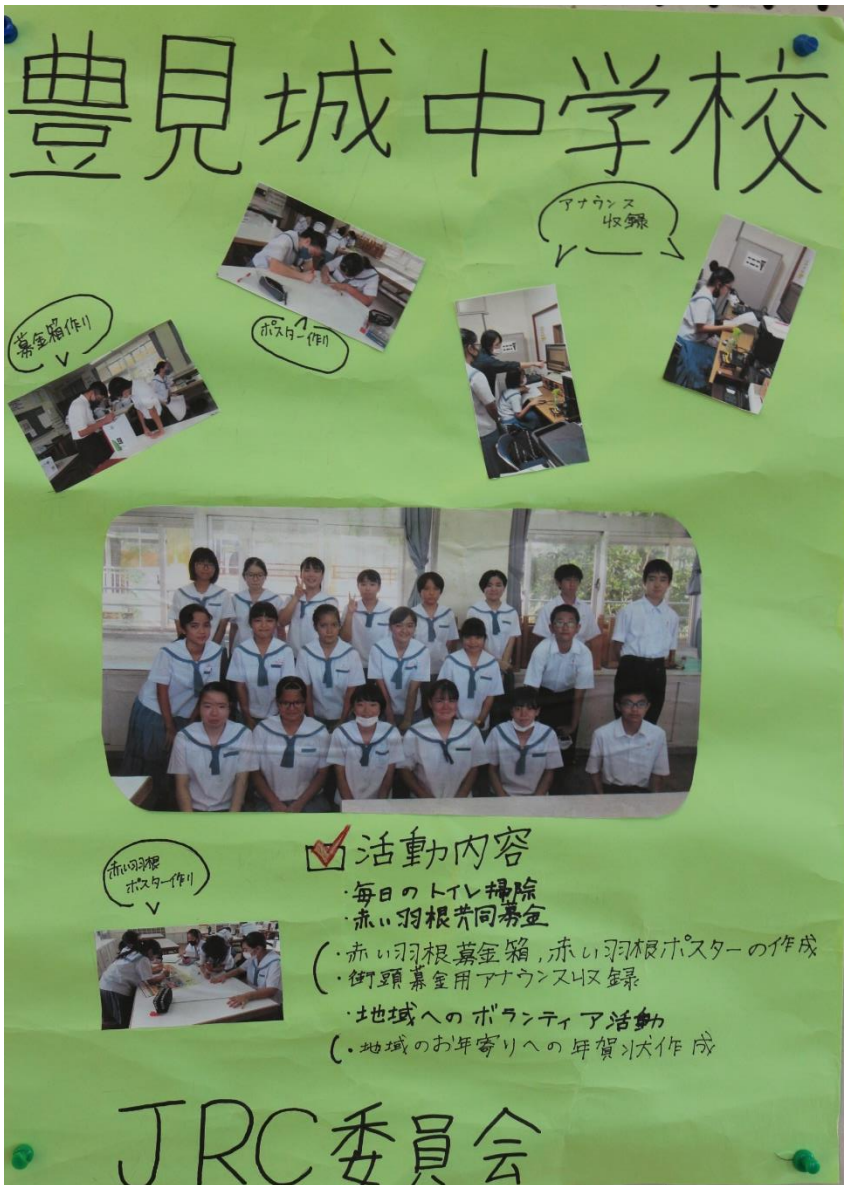 豊見城中学校
アナウンス
収録
ポスター作り
募金箱作り
赤い羽根
ポスター作り
活動内容
・毎日のトイレ掃除
・赤い羽根共同募金
(・赤い羽根募金箱,赤い羽根ポスターの作成
・街頭募金用アナウンス収録
・地域へのボランティア活動
(・地域のお年寄りへの年賀状作成
JRC委員会